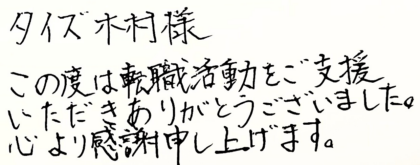 タイズ 木村様
この度は転職活動をご支援
いただきありがとうございました。
心より感謝申し上げます。